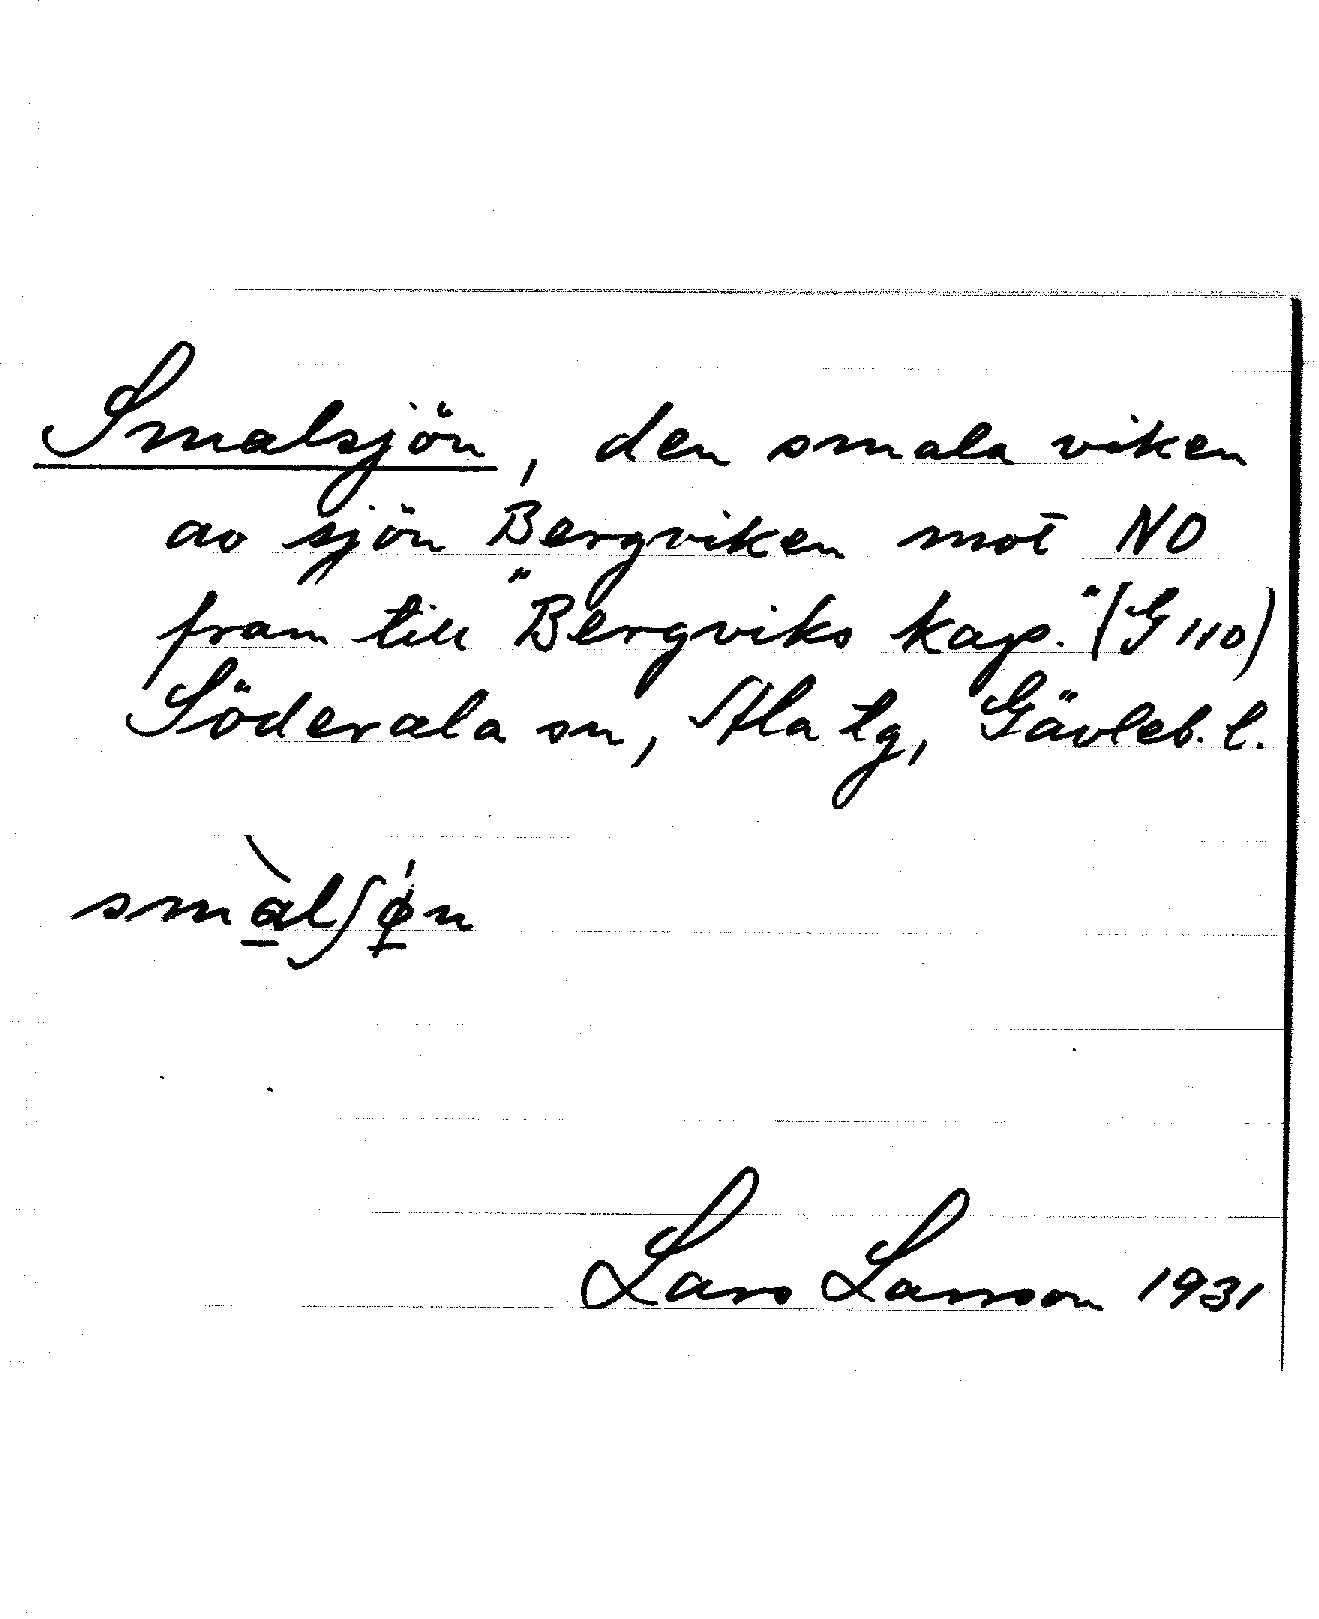 Smalsjön, den smala viken
av sjön Bergviken mot NO
fram till "Bergviks kap." (G 110)
Söderala sn, Ala tg, Gävleb. l.
smà̱lʃǿ̱n
Lars Larsson 1931